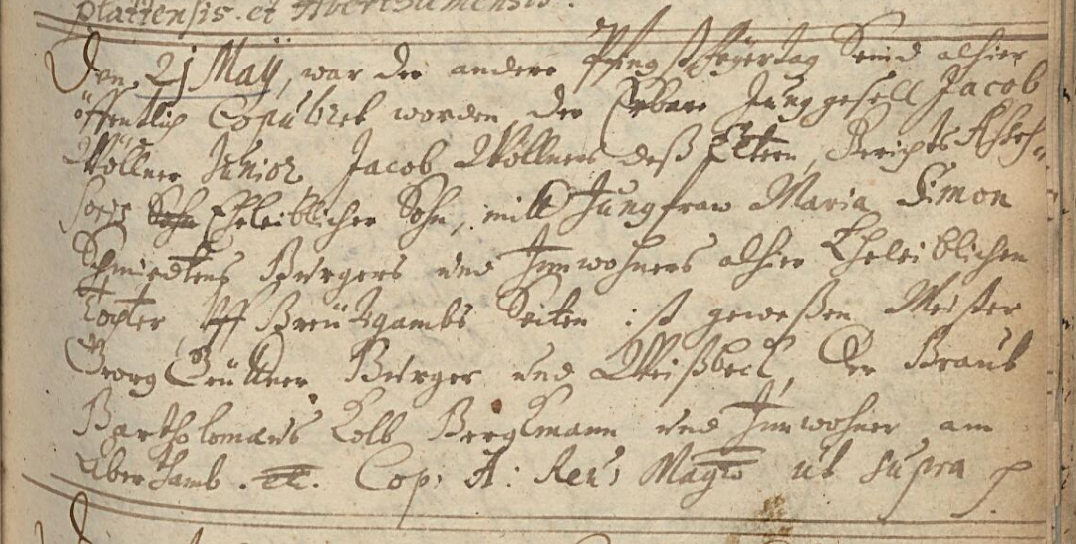 plattensis. et Aberthamensis.
Den 21 Maÿ, war der andere Pfingstfeÿertag Seind alhier
öffentlich Copuliret worden der Erbare Junggesell Jacob
Wöllner Junior, Jacob Wöllners deß Eltern, Gerichts Asses=
sors Sohn Eheleiblicher Sohn, mitt Jungfraw Maria, Simon
Schmiedtens Burgers und Innwohners alhier Eheleiblichen
Tochter, Uff Breutgambs Seiten ist geweßen Meister
Georg Grüttner, Burger und Weißbeck, Der Braut
Bartholomæus Kolb Bergkmann und Innwohner am
Abertham. etc. Cop. A: Rev: Magro ut supra